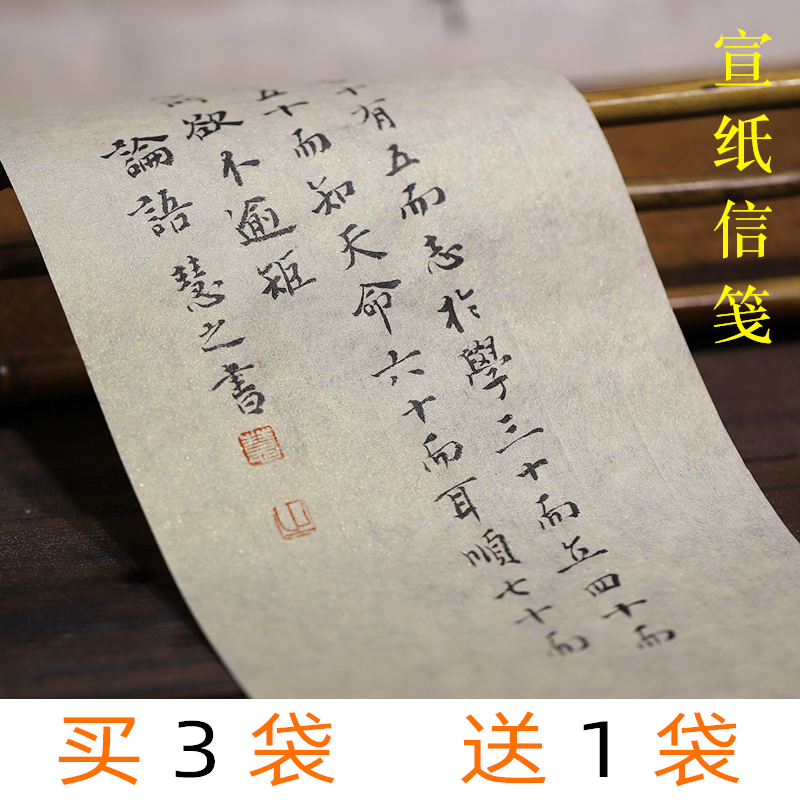 宣纸信笺
十有五而志於學三十而立四十而
五十而知天命六十而耳順七十而
欲不逾矩
論語 慧之書
买3袋 送1袋